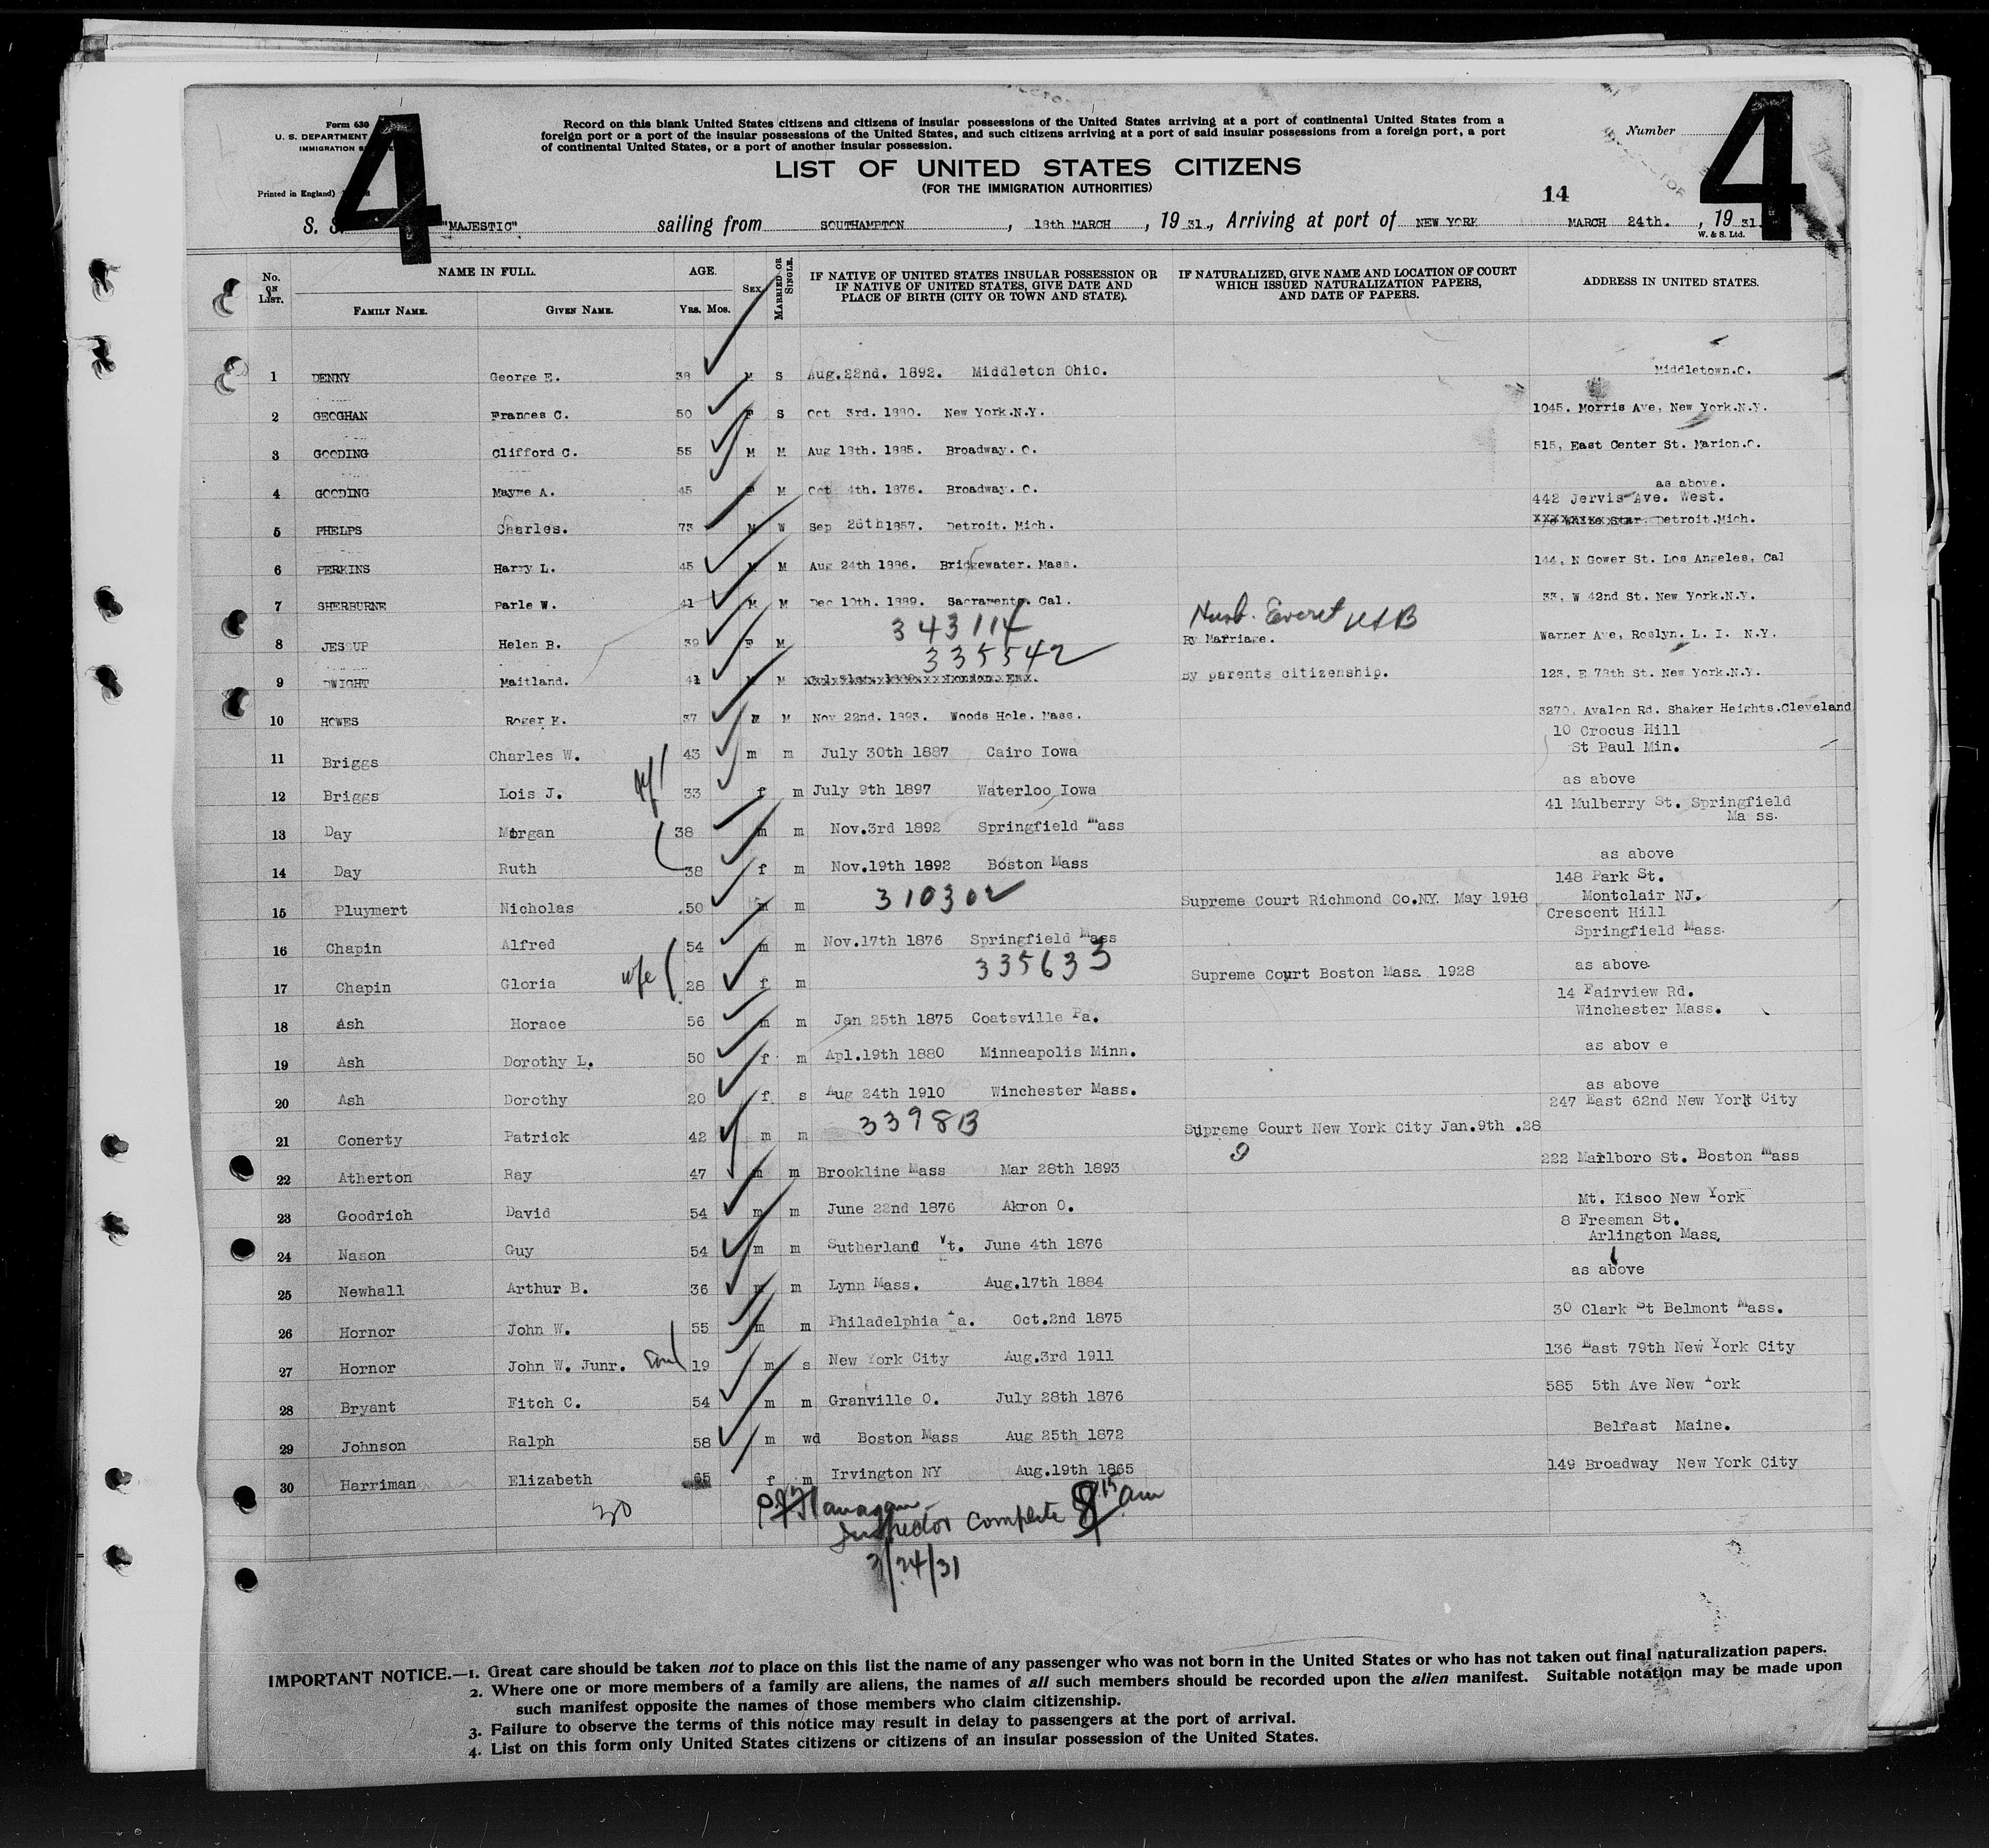 Form 630
U. S. DEPARTMENT
IMMIGRATION
Printed in England)
Record on this blank United States citizens and citizens of insular possessions of the United States arriving at a port of continental United States from a
foreign port or a port of the insular possessions of the United States, and such citizens arriving at a port of said insular possessions from a foreign port, a port
of continental United States, or a port of another insular possession.
Number
4 4
LIST OF UNITED STATES CITIZENS
(FOR THE IMMIGRATION AUTHORITIES)
14
S. S. "MAJESTIC" sailing from SOUTHAMPTON, 18th MARCH, 19 31., Arriving at port of NEW YORK MARCH 24th., 19 31.
W. & S. Ltd.
No. ON LIST. NAME IN FULL. FAMILY NAME. GIVEN NAME. AGE. YRS. MOS. SEX MARRIED OR SINGLE. IF NATIVE OF UNITED STATES INSULAR POSSESSION OR IF NATIVE OF UNITED STATES, GIVE DATE AND PLACE OF BIRTH (CITY OR TOWN AND STATE). IF NATURALIZED, GIVE NAME AND LOCATION OF COURT WHICH ISSUED NATURALIZATION PAPERS, AND DATE OF PAPERS. ADDRESS IN UNITED STATES.
1 DENNY George E. 38 M S Aug.22nd. 1892. Middleton Ohio. Middletown.O.
2 GEOGHAN Frances C. 50 F S Oct 3rd. 1880. New York.N.Y. 1045. Morris Ave, New York.N.Y.
3 GOODING Clifford C. 55 M M Aug 18th. 1885. Broadway. O. 515, East Center St. Marion.O.
4 GOODING Mayme A. 45 F M Oct 4th. 1876. Broadway. O. as above.
442 Jervis Ave. West.
5 PHELPS Charles. 73 M W Sep 26th 1857. Detroit. Mich. Detroit.Mich.
6 PERKINS Harry L. 45 M M Aug 24th 1886. Bridgewater. Mass. 144, N Gower St. Los Angeles, Cal
7 SHERBURNE Parle W. 41 M M Dec 10th. 1889. Sacramento. Cal. 33, W 42nd St. New York.N.Y.
343114 Husb. Everet USB
8 JESSUP Helen B. 39 F M By Marriage. Warner Ave, Roslyn. L. I. N.Y.
335542
9 DWIGHT Maitland. 41 M M By parents citizenship. 123, E 78th St. New York.N.Y.
10 HOWES Roger K. 37 M M Nov 22nd. 1893. Woods Hole. Mass. 3270, Avalon Rd. Shaker Heights.Cleveland
10 Crocus Hill
11 Briggs Charles W. 43 m m July 30th 1887 Cairo Iowa St Paul Min.
12 Briggs Lois J. 33 f m July 9th 1897 Waterloo Iowa as above
41 Mulberry St. Springfield
13 Day Morgan 38 m m Nov.3rd 1892 Springfield Mass Mass.
14 Day Ruth 38 f m Nov.19th 1892 Boston Mass as above
148 Park St.
15 Pluymert Nicholas 50 m m 310302 Supreme Court Richmond Co.NY. May 1918 Montclair NJ.
Crescent Hill
16 Chapin Alfred 54 m m Nov.17th 1876 Springfield Mass Springfield Mass.
17 Chapin Gloria wfe 28 f m 335633 Supreme Court Boston Mass 1928 as above.
14 Fairview Rd.
18 Ash Horace 56 m m Jan 25th 1875 Coatsville Pa. Winchester Mass.
19 Ash Dorothy L. 50 f m Apl.19th 1880 Minneapolis Minn. as above
20 Ash Dorothy 20 f s Aug 24th 1910 Winchester Mass. as above
247 East 62nd New York City
21 Conerty Patrick 42 m m 3398B Supreme Court New York City Jan.9th .28
9
22 Atherton Ray 47 m m Brookline Mass Mar 28th 1893 222 Marlboro St. Boston Mass
23 Goodrich David 54 m m June 22nd 1876 Akron O. Mt. Kisco New York
8 Freeman St.
24 Nason Guy 54 m m Sutherland Vt. June 4th 1876 Arlington Mass.
25 Newhall Arthur B. 36 m m Lynn Mass. Aug.17th 1884 as above
26 Hornor John W. 55 m m Philadelphia Pa. Oct.2nd 1875 30 Clark St Belmont Mass.
27 Hornor John W. Junr. son 19 m s New York City Aug.3rd 1911 136 East 79th New York City
28 Bryant Fitch C. 54 m m Granville O. July 28th 1876 585 5th Ave New York
29 Johnson Ralph 58 m wd Boston Mass Aug 25th 1872 Belfast Maine.
30 Harriman Elizabeth 65 f m Irvington NY Aug.19th 1865 149 Broadway New York City
30
Flanagan
Inspector Complete 8 15 am
3/24/31
IMPORTANT NOTICE.—1. Great care should be taken not to place on this list the name of any passenger who was not born in the United States or who has not taken out final naturalization papers.
2. Where one or more members of a family are aliens, the names of all such members should be recorded upon the alien manifest. Suitable notation may be made upon
such manifest opposite the names of those members who claim citizenship.
3. Failure to observe the terms of this notice may result in delay to passengers at the port of arrival.
4. List on this form only United States citizens or citizens of an insular possession of the United States.